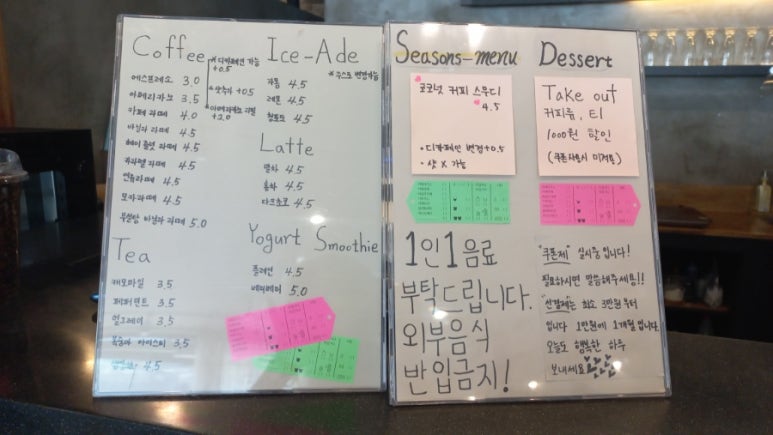 Coffee
* 디카페인 가능 +0.5
* 샷추가 +0.5
* 아메리카노 리필 +2.0
에스프레소 3.0
아메리카노 3.5
카페라떼 4.0
바닐라 라떼 4.5
헤이즐넛 라떼 4.5
카라멜 라떼 4.5
연유라떼 4.5
모카라떼 4.5
무설탕 바닐라 라떼 5.0
Tea
캐모마일 3.5
페퍼민트 3.5
얼그레이 3.5
복숭아 아이스티 3.5
4.5
Ice-Ade
* 쥬스로 변경가능
자몽 4.5
레몬 4.5
청포도 4.5
Latte
말차 4.5
홍차 4.5
다크초코 4.5
Yogurt Smoothie
플레인 4.5
베리베리 5.0
Seasons-menu
코코넛 커피 스무디
4.5
• 디카페인 변경+0.5
• 샷 X 가능
1인 1음료
부탁드립니다.
외부음식
반입금지!
Dessert
Take out
커피류, 티
1000원 할인
(쿠폰사용시 미적용)
"쿠폰제" 실시중입니다!
필요하시면 말씀해주세용!!
"선결제"는 최소 3만원부터
입니다 1만원에 1개월입니다.
오늘도 행복한 하루
보내세요